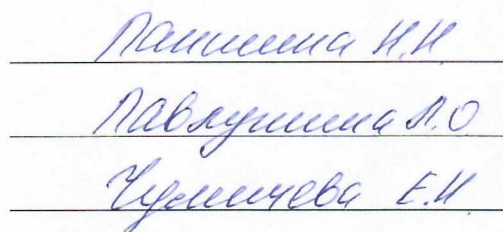 Паншина Н.Н.
Павлушина Л.О
Чумичева Е.Н.